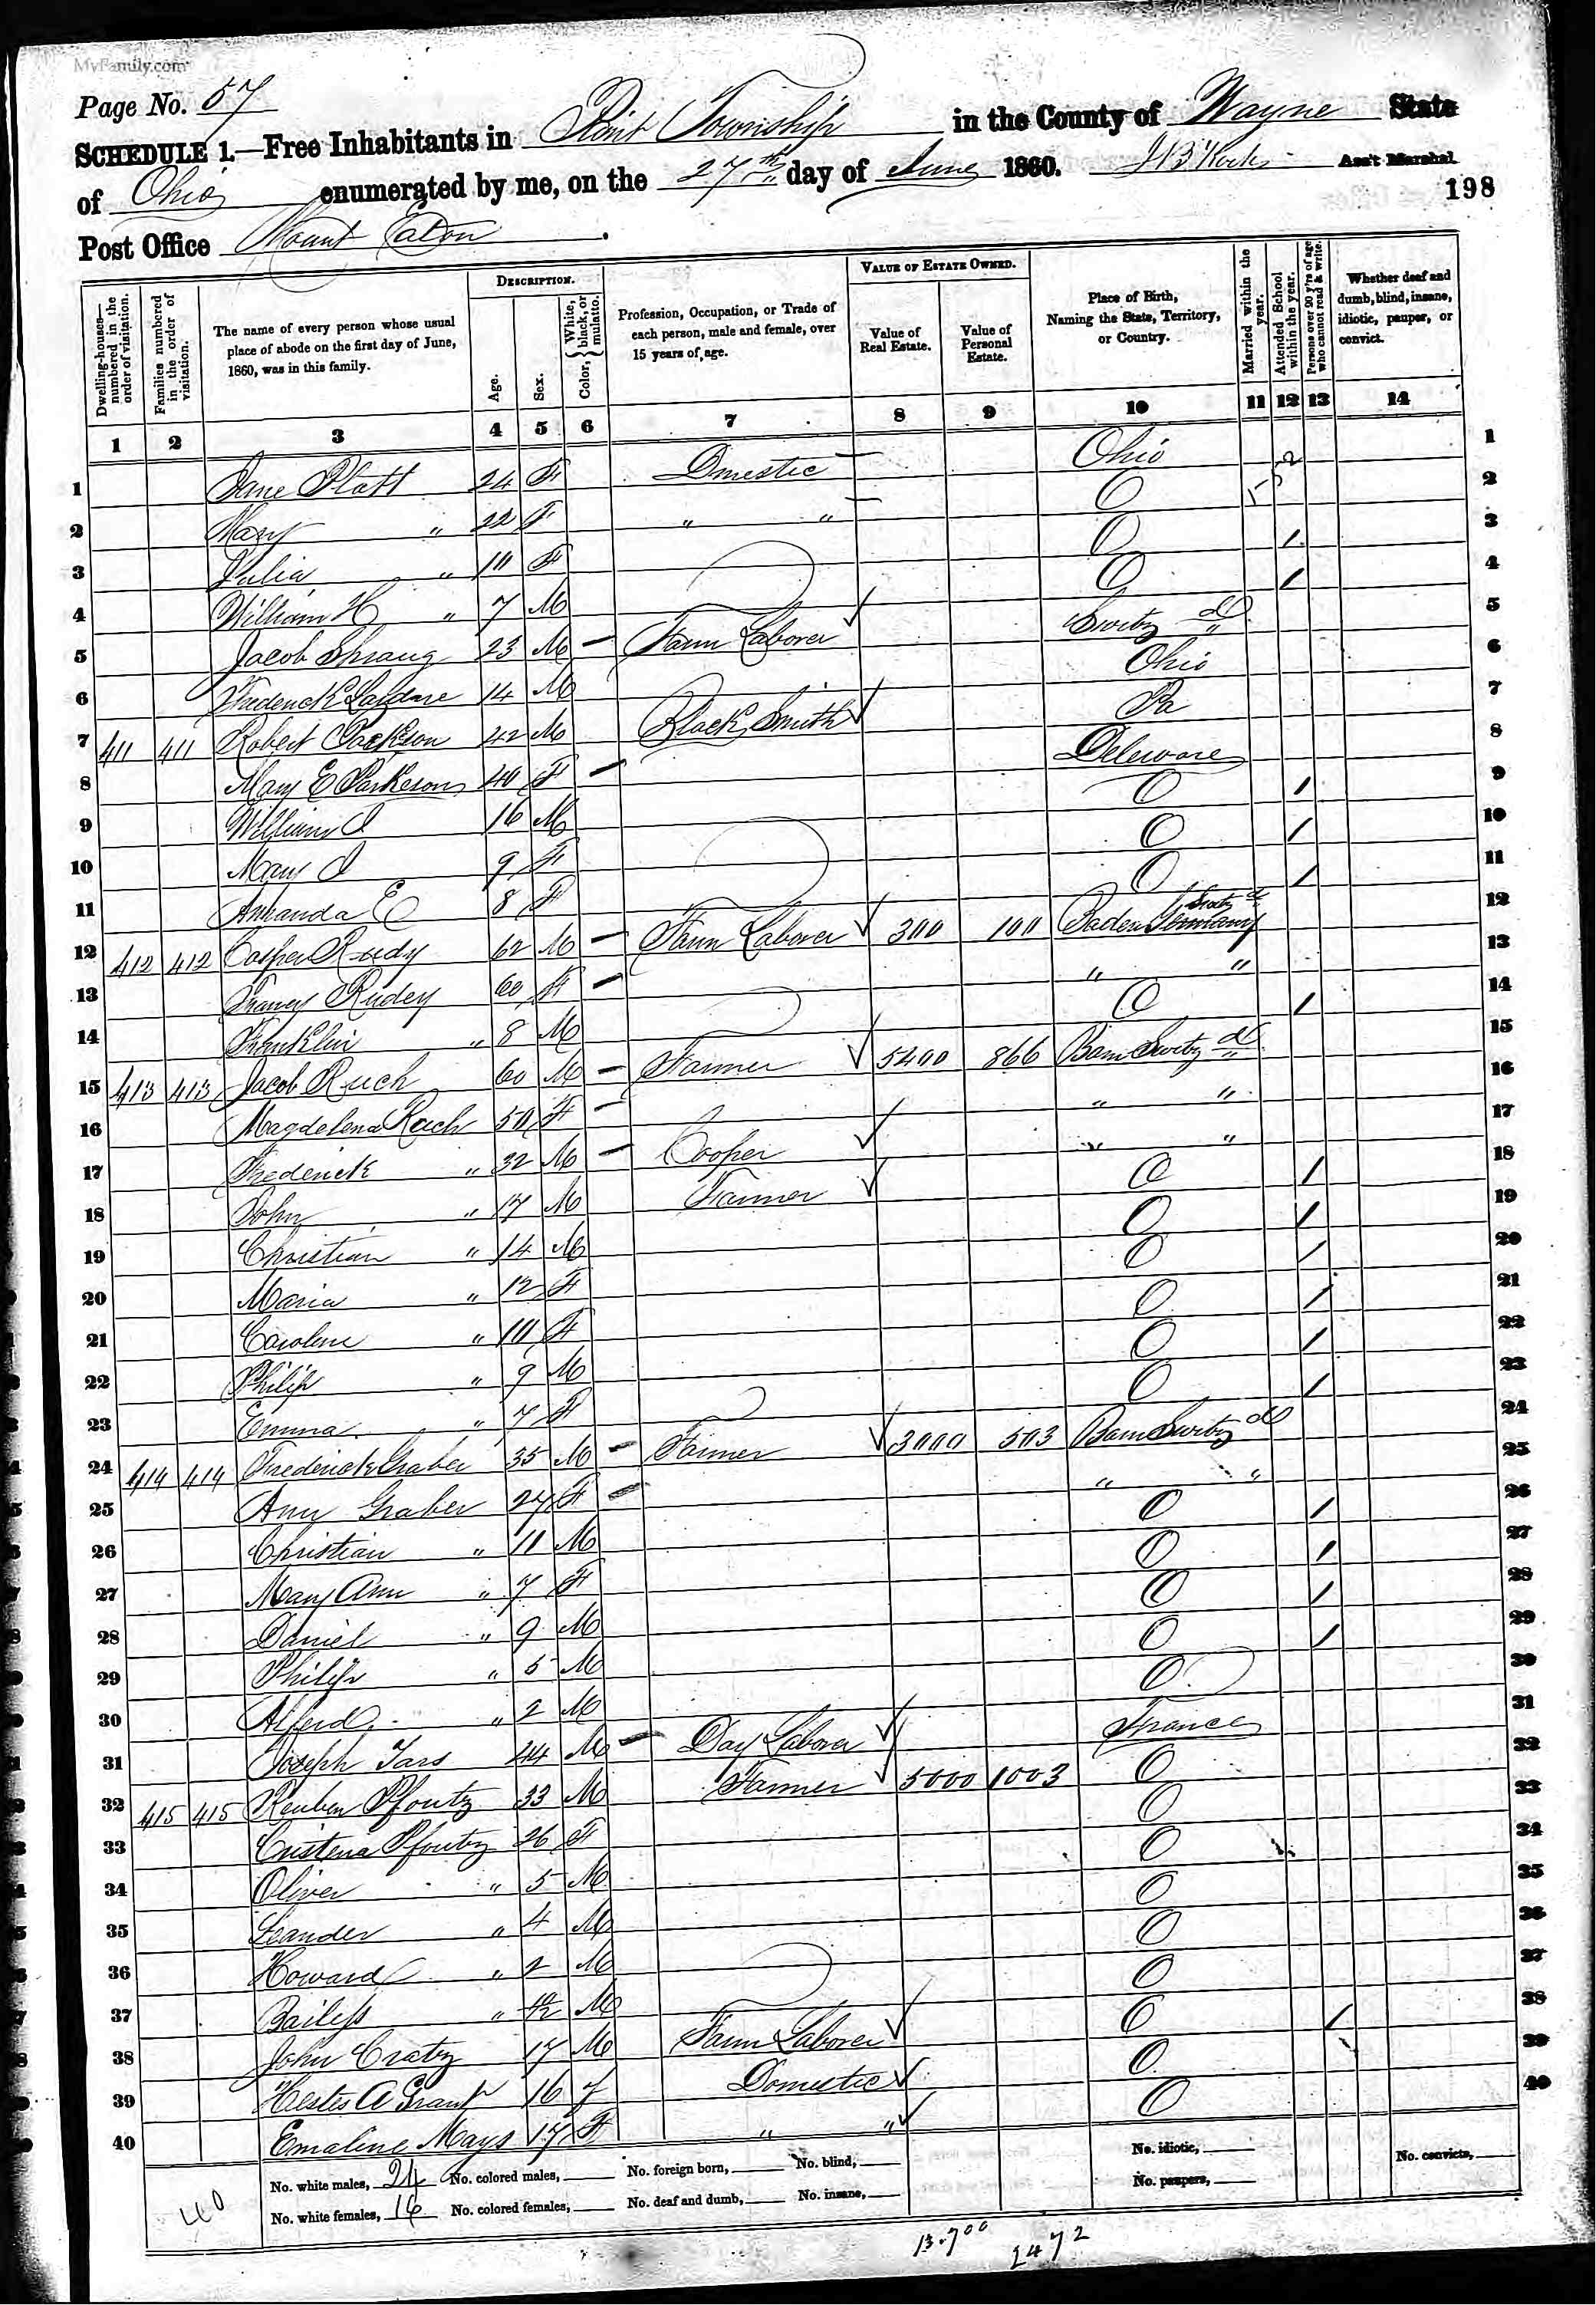 MyFamily.com
Page No. 57
SCHEDULE 1.—Free Inhabitants in Paint Township in the County of Wayne State
of Ohio enumerated by me, on the 27th day of June 1860. Ass't Marshal.
198
Post Office Mount Eaton.
Dwelling-houses—numbered in the order of visitation.
Families numbered in the order of visitation.
The name of every person whose usual place of abode on the first day of June, 1860, was in this family.
DESCRIPTION.
Age.
Sex.
Color, White, black, or mulatto.
Profession, Occupation, or Trade of each person, male and female, over 15 years of age.
VALUE OF ESTATE OWNED.
Value of Real Estate.
Value of Personal Estate.
Place of Birth, Naming the State, Territory, or Country.
Married within the year.
Attended School within the year.
Persons over 20 y'rs of age who cannot read & write.
Whether deaf and dumb, blind, insane, idiotic, pauper, or convict.
1 2 3 4 5 6 7 8 9 10 11 12 13 14
1 Jane Platt 24 F Dmestic Ohio 1
2 Mary " 22 F " " O 2
3 Julia " 10 F O / 3
4 William H " 7 M O / 4
5 Jacob 23 M Farm Laborer Switz d 5
6 Frederick 14 M Ohio 6
7 411 411 Robert 42 M Black Smith Pa 7
8 Mary E Parkeson 40 F Deleware 8
9 William 16 M O / 9
10 Mary 9 F O / 10
11 Amanda E 8 F O / 11
12 412 412 Casper Rudy 62 M Farm Laborer 300 100 Baden Germany 12
13 Francy Rudey 60 F " " 13
14 Franklin " 8 M O / 14
15 413 413 Jacob Ruch 60 M Farmer 5400 866 Bern Switz d 15
16 Magdelena Ruch 50 F " " 16
17 Frederick " 32 M Cooper " " 17
18 John " 17 M Farmer O / 18
19 Christian " 14 M O / 19
20 Maria " 12 F O / 20
21 Caroline " 10 F O / 21
22 Philip " 9 M O / 22
23 Emma " 7 F O / 23
24 414 414 Frederick Graber 35 M Farmer 3000 503 Bern Switz d 24
25 Ann Graber 27 F " " 25
26 Christian " 11 M O / 26
27 Mary Ann " 7 F O / 27
28 Daniel " 9 M O / 28
29 Philip " 5 M O / 29
30 Alferd " 2 M O 30
31 Joseph 44 M Day Laborer France 31
32 415 415 Reuben Pfoutz 33 M Farmer 5000 1003 O 32
33 Cristena Pfoutz 26 F O 33
34 Oliver " 5 M O 34
35 Leander " 4 M O 35
36 Howard " 2 M O 36
37 " M O 37
38 John Cratz 17 M Farm Laborer O / 38
39 Hester A Grant 16 f Domestic O 39
40 Emaline Mays 17 F " " O 40
No. white males, 24 No. colored males, No. foreign born, No. blind, No. idiotic, No. convicts,
No. white females, 16 No. colored females, No. deaf and dumb, No. insane, No. paupers,
40
13.700 2472